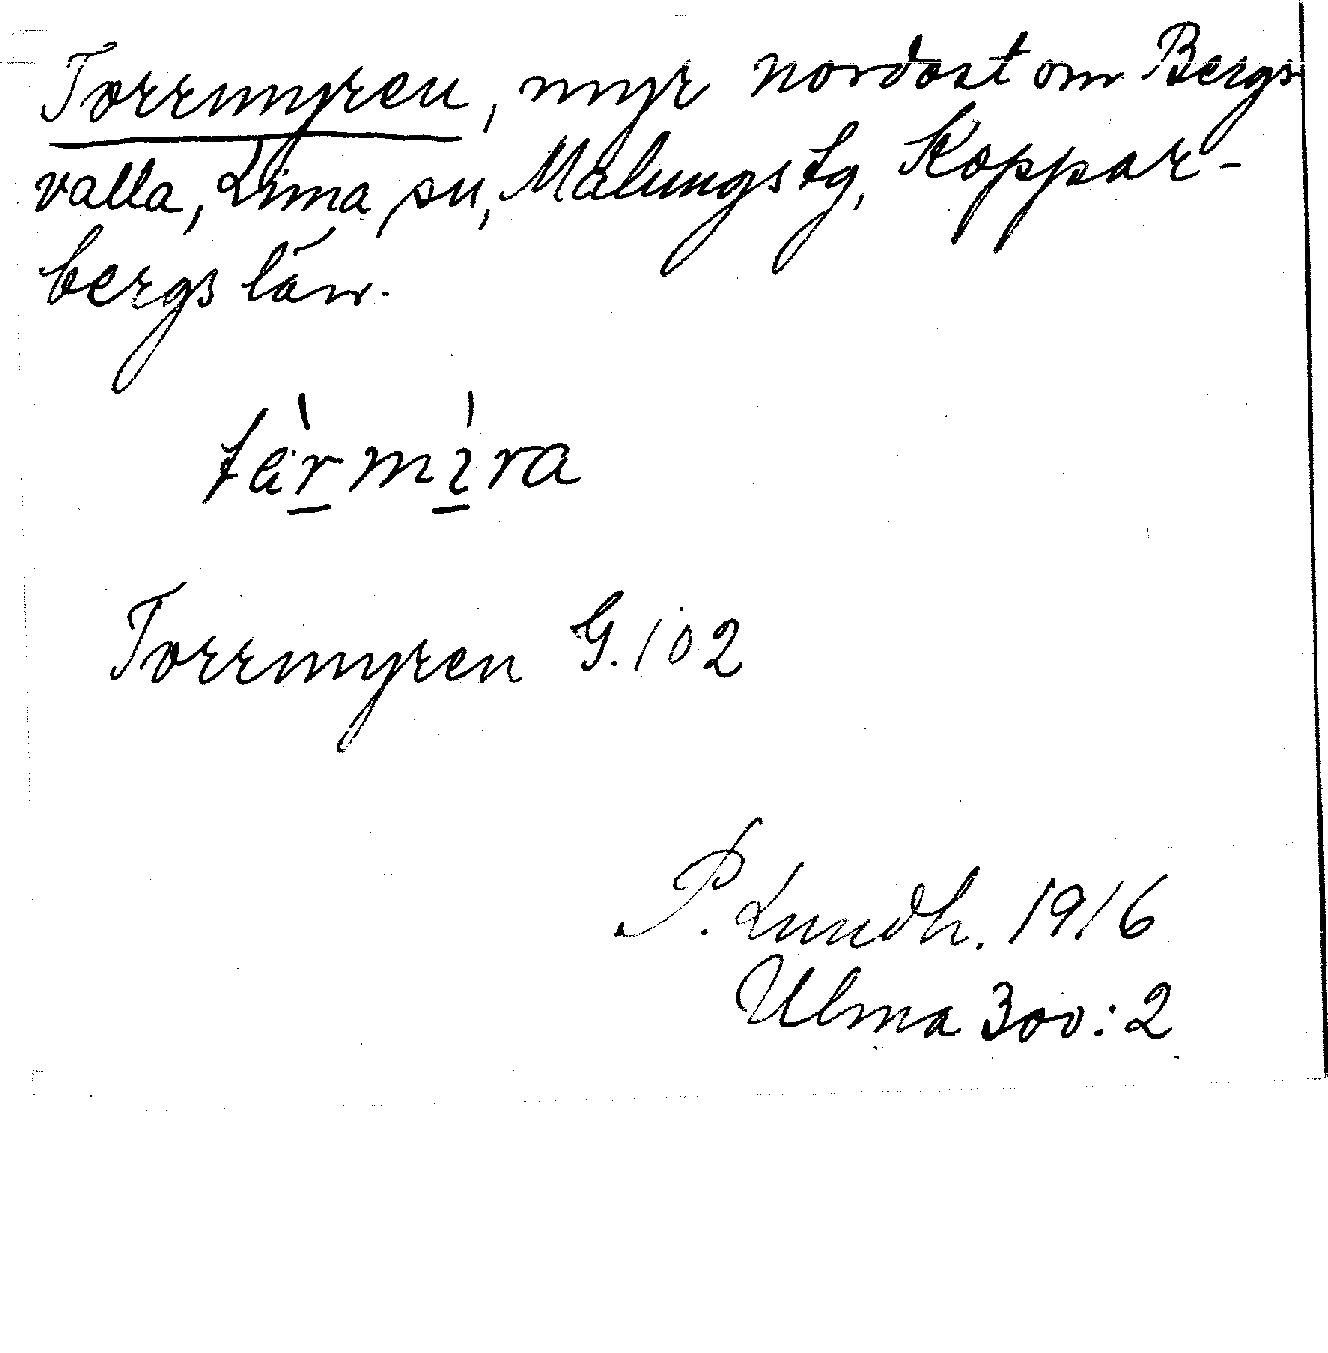 Torrmyren, myr nordost om Bergs
valla, Lima sn, Malungs tg, Koppar-
bergs län.
tärmıra
Torrmyren G.102
P. Lundh. 1916
Ulma 300:2